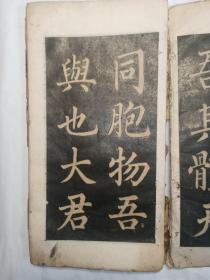 吾其體天
同胞物吾
與也大君